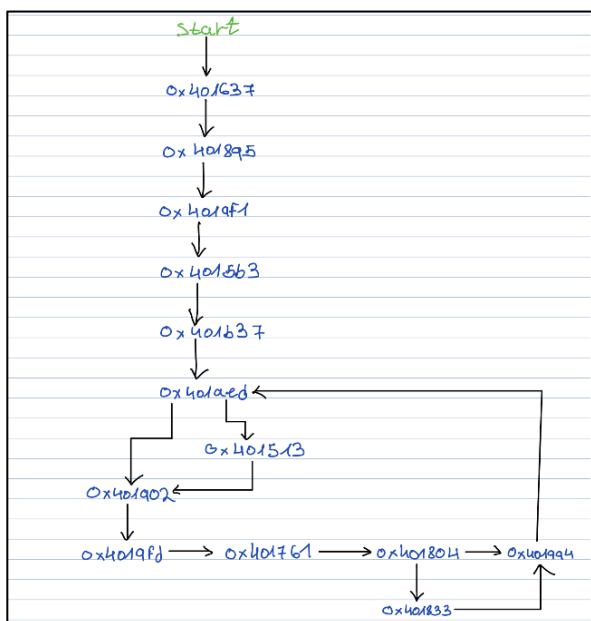 Start
0x401637
0x401895
0x4019f1
0x4015b3
0x401b37
0x401aed
0x401513
0x401902
0x4019fd 0x401761 0x401804 0x401994
0x401833